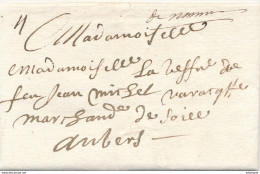 de namur
4
Madamoiselle
Madamoiselle La veffve de
feu Jean michel
marchande de soise
anvers